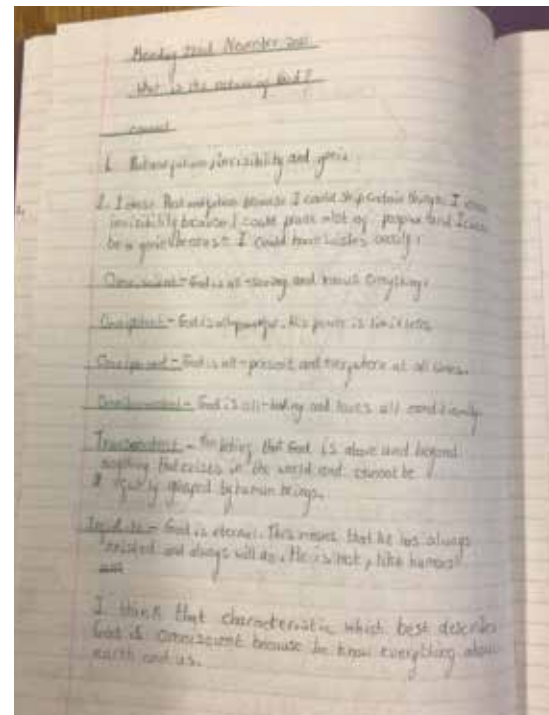 Monday 22nd November
What is the nature of God?
1. invisibility and genie
2. I chose because I could skip certain things. I chose
invisibility because I could prank alot of people and I chose
be a genie because I could have wishes easily.
Omniscient - God is all-seeing and knows everything.
Omnipotent - God is all-powerful. His power is limitless.
God is all-present and everywhere at all times.
God is all-loving and loves all
Transcendent - God is above and beyond
anything that exists in the world and cannot be
grasped by human beings.
God is eternal. This means that he has always
existed and always will do. He is not, like humans
I think that characteristic which best describes
God is omniscient because he know everything about
earth and us.